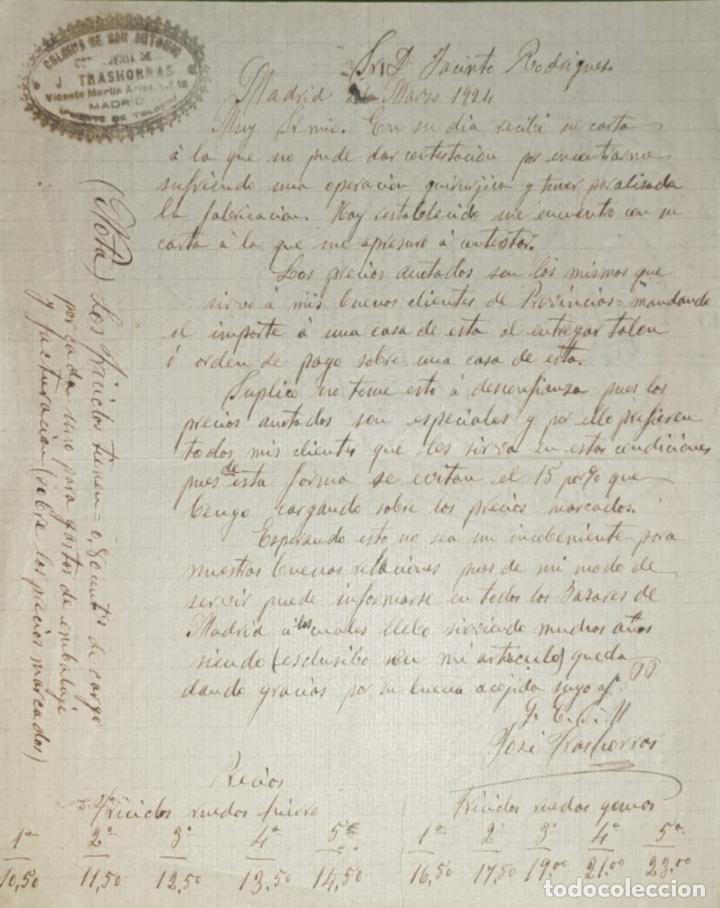 COLONIA DE SAN ANTONIO
CERRAJERIA DE
J. TRASHORRAS
Vicente Martin Arias, 12
MADRID
(PUENTE DE TOLEDO)
Sr. D. Jacinto Rodriguez
Madrid Marzo 1924
Muy Sr mio. En su dia recibi su carta
á la que no pude dar contestacion por encontrarme
sufriendo una operacion quirurjica y tener paralisada
la fabricacion. Hoy restablecido me encuentro con su
carta á la que me apresuro á contestar.
Los precios anotados son los mismos que
sirvo á mis buenos clientes de Provincias = mandando
el importe á una casa de esta al entregar talon
ó orden de pago sobre una casa de esta.
Suplico no tome esto á desconfianza pues los
precios anotados son especiales y por ello prefieren
todos mis clientes que les sirva en estas condiciones
pues de esta forma se evitan el 15 por % que
bengo cargando sobre los precios marcados.
Esperando esto no sea un incobeniente para
nuestras buenas relaciones pues de mi modo de
servir puede informarse en todos los Bazares de
Madrid a los cuales llebo sirviendo muchos años
siendo (esclusibo en mi articulo) queda
dando gracias por su buena acojida suyo af.
q. E. S. M
José Trashorras
(Nota) Los triciclos tienen = 0,80 centms de cargo
por cada uno para gastos de embalaje
y facturacion (sobre los precios marcados)
Precios
Triciclos ruedas hierro
1ª 2ª 3ª 4ª 5ª
10,50 11,50 12,50 13,50 14,50
Triciclos ruedas gomas
1ª 2ª 3ª 4ª 5ª
16,50 17,50 19,00 21,00 23,00
todocoleccion.net